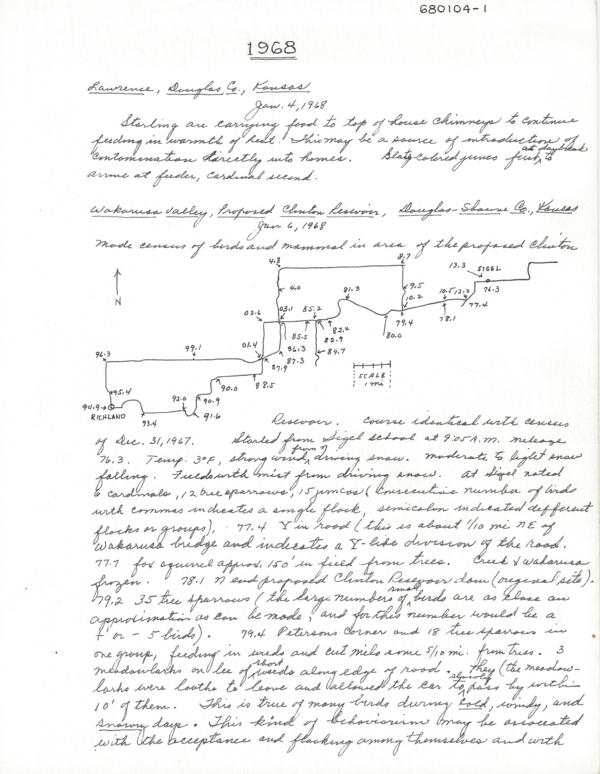 680104-1
1968
Lawrence, Douglas Co., Kansas
Jan. 4, 1968
Starling are carrying food to top of house chimneys to continue
feeding in warmth of heat. This may be a source of introduction of
contamination directly into homes. Slate colored juncos first to at daybreak
arrive at feeder, cardinal second.
Wakarusa Valley, Proposed Clinton Resevoir, Douglas-Shawne Co., Kansas
Jan 6, 1968
Made census of birds and mammal in area of the proposed Clinton
4.8
8.7
13.3 SIGEL
76.3
N
4.0
81.3
9.5
10.2
10.5
12.2
77.4
02.6
03.1
85.2
79.4
78.1
85.5
82.4
82.9
80.0
99.1
01.4
86.3
87.3
84.7
96.3
87.9
SCALE
1 mi
95.4
90.0
88.5
94.9
RICHLAND
93.4
92.0
90.9
91.6
Resevoir. Course identical with census
of Dec. 31, 1967. Started from Sigel school at 9:05 A.M. mileage
76.3. Temp. 3°F, strong wind, from N driving snow. moderate to light snow
falling. Fields with mist from driving snow. At Sigel noted
6 cardinals, 12 tree sparrows, 15 juncos (Consecutive number of birds
with commas indicates a single flock, semicolon indicated different
flocks or groups). 77.4 Y in road (this is about 1/10 mi NE of
Wakarusa bridge and indicates a Y-like division of the road.
77.7 fox squirrel approx. 150' in field from trees. Creek & Wakarusa
frozen. 78.1 N end proposed Clinton Resevoir dam (original site).
79.2 35 tree sparrows (the large numbers of small birds are as close an
approximation as can be made, and for this number would be a
+ or - 5 birds). 79.4 Petersons Corner and 18 tree sparrows in
one group, feeding in weeds and cut milo some 5/10 mi. from trees. 3
meadowlarks on lee of short weeds along edge of road. They (the meadow-
larks were loathe to leave and allowed the car to slowly pass by within
10' of them. This is true of many birds during cold, windy, and
snowy days. This kind of behaviorism may be associated
with the acceptance and flocking among themselves and with